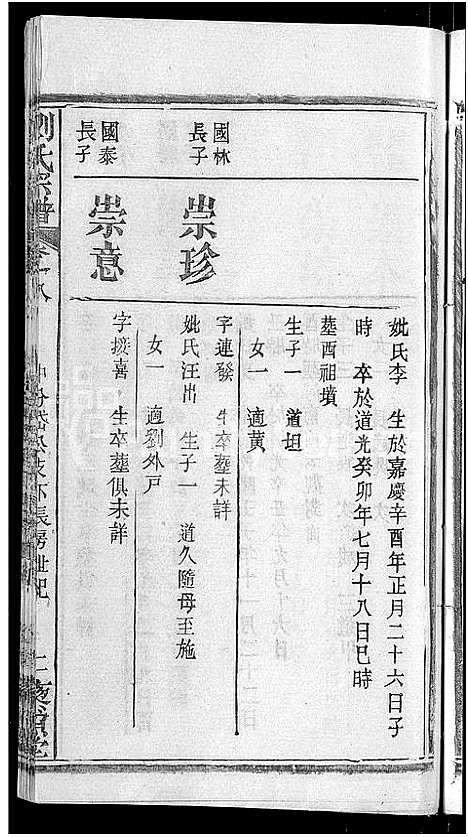 妣氏李　生於嘉慶辛酉年正月二十六日子
時　卒於道光癸卯年七月十八日巳時
塟酉祖墳
生子一　道坦
女一　適黃
國林
長子
崇珍
字連發　生卒塟未詳
妣氏汪出　生子一　道久隨母至施
女一　適劉外戸
國泰
長子
崇意
字援喜　生卒塟俱未詳
劉氏宗譜
長房世紀